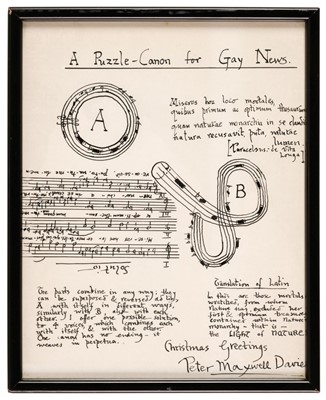 A Puzzle-Canon for Gay News.
A
Miseros hoc loco mortales,
quibus primum ac optimum thesaurum
quam naturae monarchia in se claudit
natura recusavit puta, naturae
lumen.
[Paracelsus: de Vita
Longa]
B
Solution
The parts combine in any way; they
can be superposed & reversed as loops,
A with itself in different ways,
similarly with B, also with each
other. I offer one possible solution,
to 4 voices, which combines each
with itself & with the other.
The canon has no ending - it
weaves in perpetua.
Translation of Latin
are those mortals
wretched, from whom
nature has
first & optimum treasure
contained within nature's
monarchy - that is -
the Light of NATURE.
Christmas Greetings
Peter Maxwell Davies